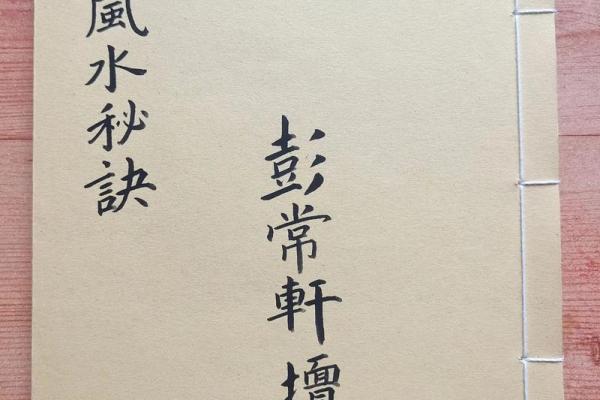 彭常軒壇
風水秘訣